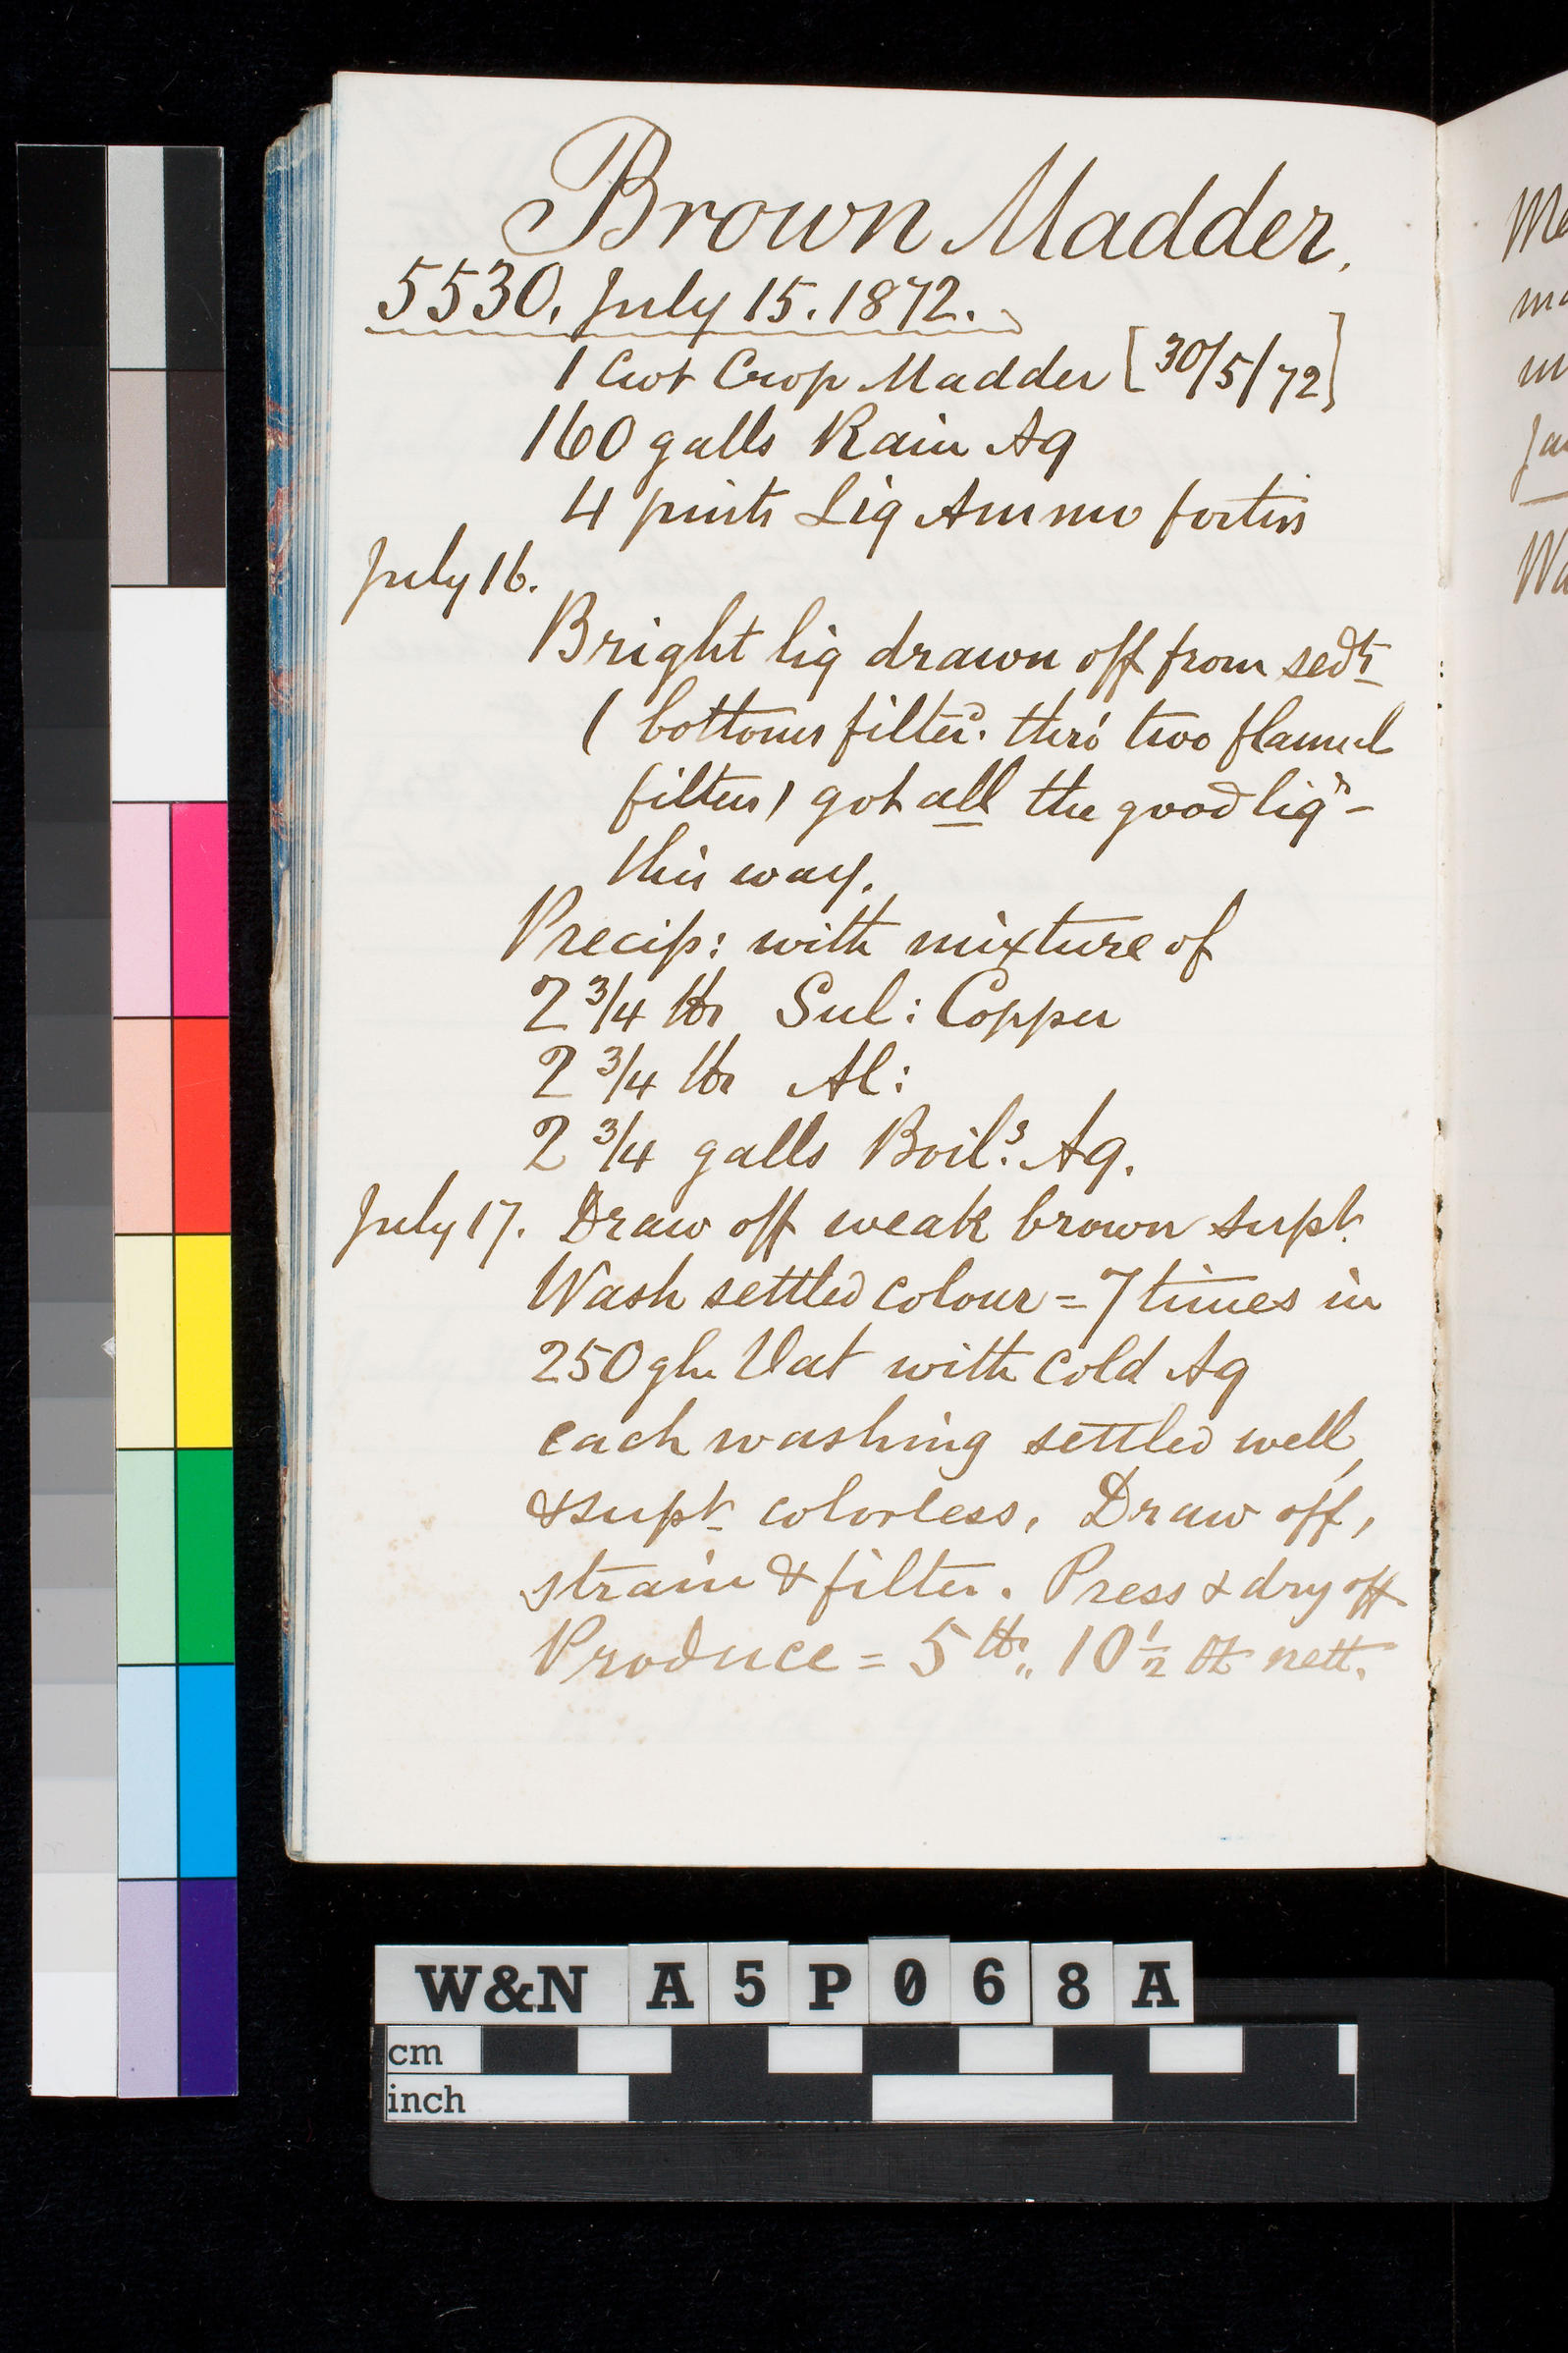 Brown Madder.
5530. July 15. 1872.
1 Cwt Crop Madder [30/5/72]
160 galls Rain Aq
4 pints Liq Ammo fortiss
July 16.
Bright liq drawn off from sedt
( bottoms filterd. thro' two flannel
filters) got all the good liqr -
this way.
Precip: with mixture of
2 3/4 lbs Sul: Copper
2 3/4 lbs Al:
2 3/4 galls Boilg. Aq.
July 17. Draw off weak brown supt.
Wash settled colour = 7 times in
250 gln Vat with cold Aq
each washing settled well,
& supt colorless. Draw off,
strain & filter. Press & dry off
Produce = 5 lbs,, 10 1/2 oz nett.
Me
ma
m
Ja
Wa
W&N A 5 P 0 6 8 A
cm
inch